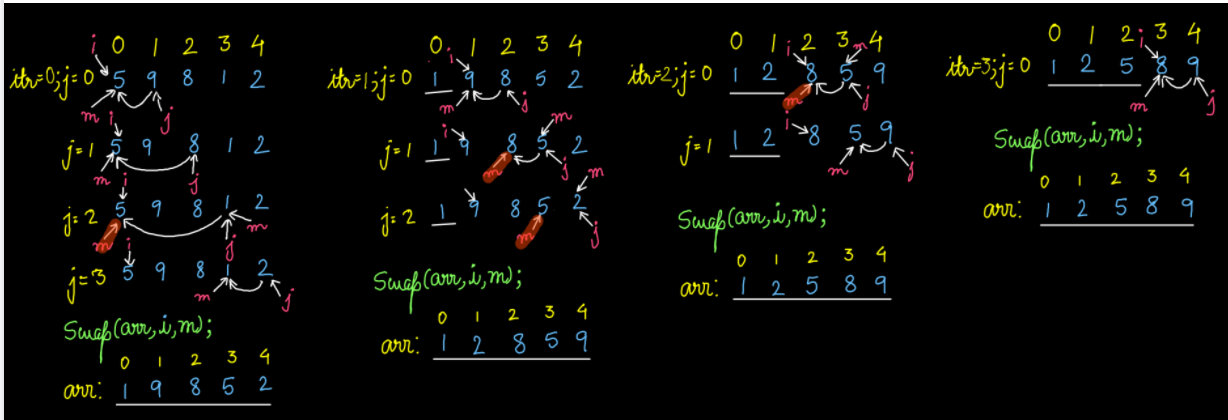 i 0 1 2 3 4
itr=0;j=0 5 9 8 1 2
m i j
j=1 5 9 8 1 2
m i j
j=2 5 9 8 1 2
m i j m
j=3 5 9 8 1 2
m j
Swap(arr,i,m);
0 1 2 3 4
arr: 1 9 8 5 2
0 i 1 2 3 4
itr=1;j=0 1 9 8 5 2
i m j m
j=1 1 9 8 5 2
m j m
j=2 1 9 8 5 2
m j
Swap(arr,i,m);
0 1 2 3 4
arr: 1 2 8 5 9
0 1 i 2 3 m 4
itr=2;j=0 1 2 8 5 9
m j
i
j=1 1 2 8 5 9
m j
Swap(arr,i,m);
0 1 2 3 4
arr: 1 2 5 8 9
0 1 2 i 3 4
itr=3;j=0 1 2 5 8 9
m j
Swap(arr,i,m);
0 1 2 3 4
arr: 1 2 5 8 9